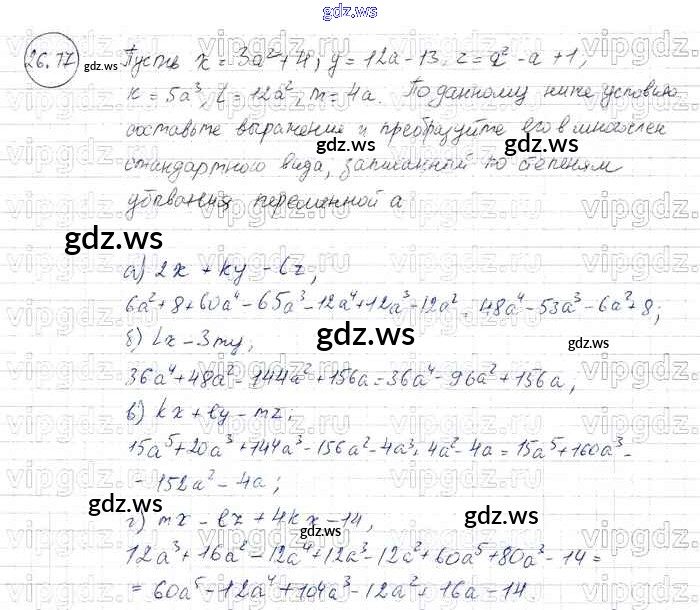 gdz.ws
26.17
Пусть x = 3a² + 4, y = 12a - 13, z = a² - a + 1,
gdz.ws
k = 5a³, l = 12a², m = 4a. По данному ниже условию
составьте выражение и преобразуйте его в многочлен
стандартного вида, записанный по степеням
убывания переменной a
gdz.ws
а) 2x + ky - lz;
6a² + 8 + 60a⁴ - 65a³ - 12a⁴ + 12a³ - 12a² = 48a⁴ - 53a³ - 6a² + 8;
б) lx - 3my;
gdz.ws
gdz.ws
36a⁴ + 48a² - 144a² + 156a = 36a⁴ - 96a² + 156a,
в) kx + ly - mz;
15a⁵ + 20a³ + 144a³ - 156a² - 4a³ + 4a² - 4a = 15a⁵ + 160a³ -
- 152a² - 4a;
gdz.ws
г) mx - lz + 4kx - 14,
gdz.ws
gdz.ws
12a³ + 16a² - 12a⁴ + 12a³ - 12a² + 60a⁵ + 80a³ - 14 =
= 60a⁵ - 12a⁴ + 104a³ - 12a² + 16a - 14.
vipgdz.ru